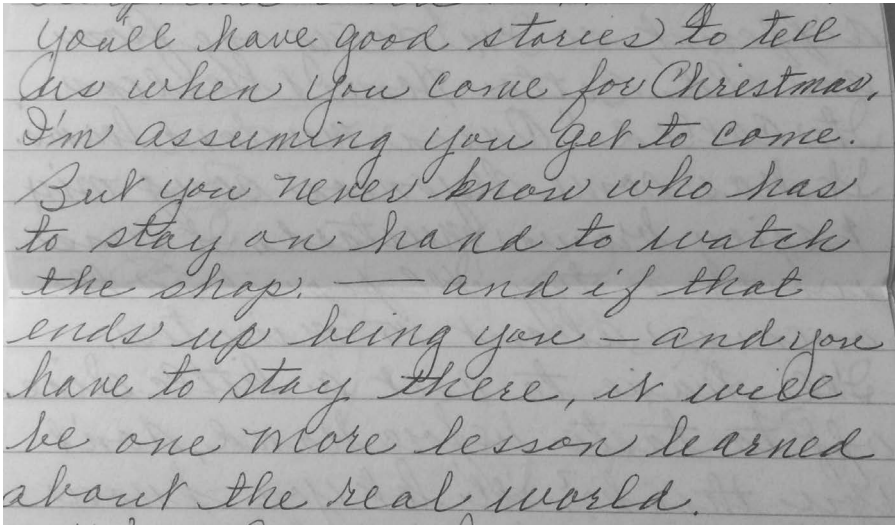 you'll have good stories to tell
us when you come for Christmas,
I'm assuming you get to come.
But you never know who has
to stay on hand to watch
the shop. — and if that
ends up being you – and you
have to stay there, it will
be one more lesson learned
about the real world.